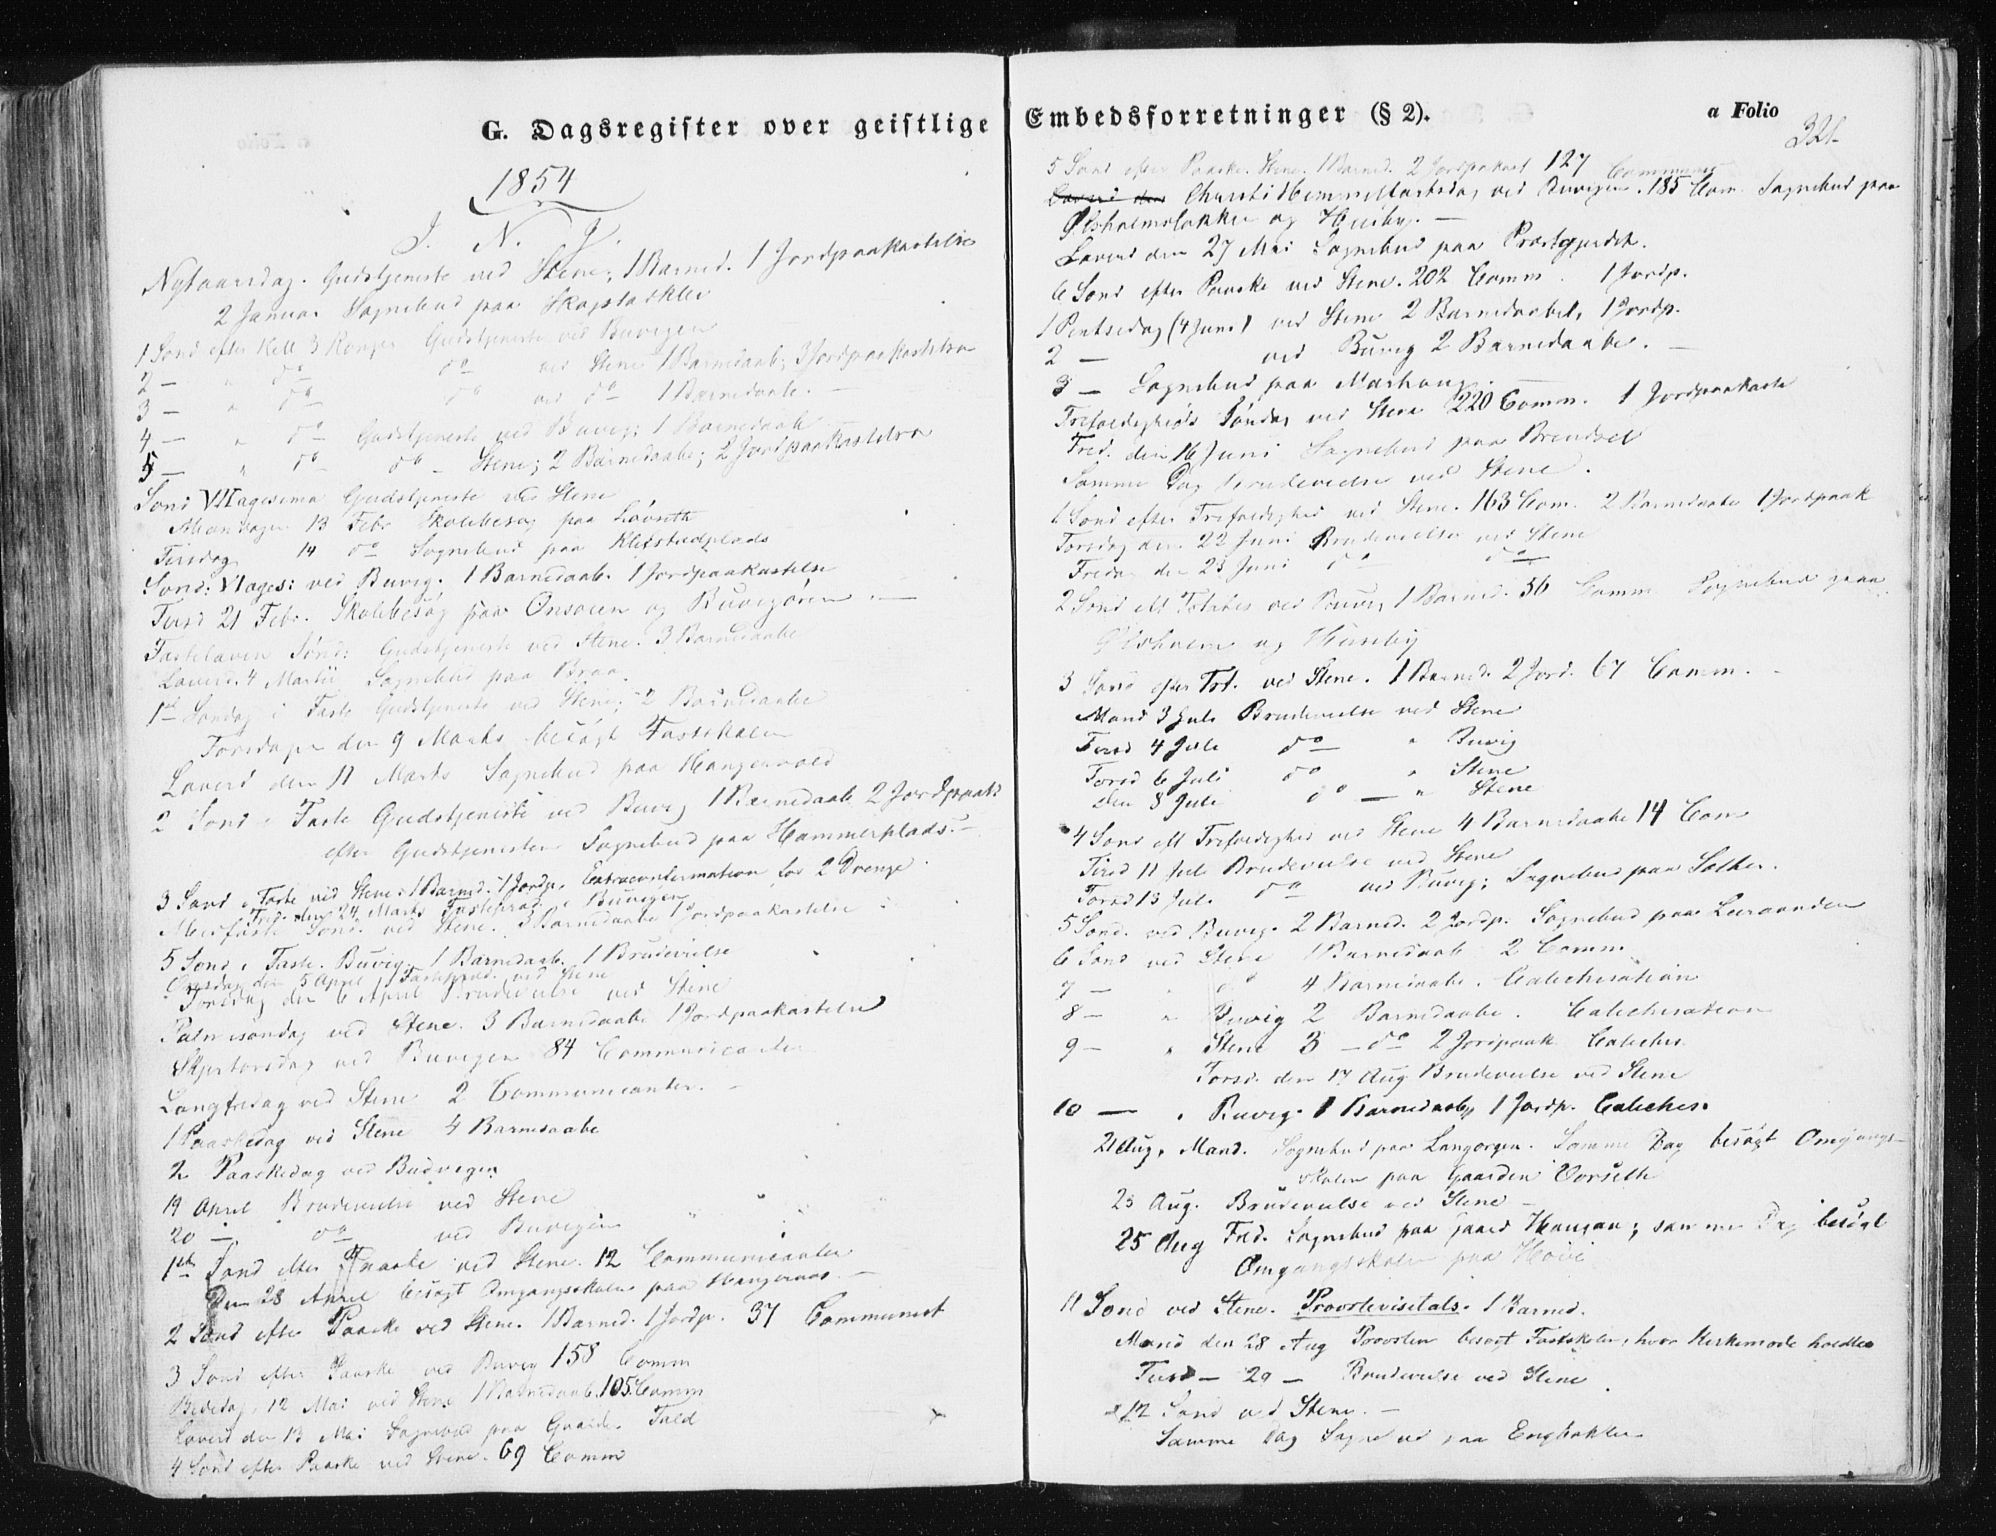 G. Dagsregister over geistlige
1854
J. N. J.
Nytaarsdag. Gudstjeneste ved Stene; 1 Barned. 1 Jordpaakastelse
2 Januar Sognebud paa Skogstadklev
1 Sønd efter Hell 3 Konger Gudstjeneste ved Buvigen
2 — " do do ved Stene 1 Barnedaab; 3 Jordpaakastelser
3 — " do do ved do 1 Barnedaab. —
4 — " do Gudstjeneste ved Buvig; 1 Barnedaab
5 — " do do - Stene; 2 Barnedaabe; 2 Jordpaakastelser
Sønd VIIagesima Gudstjeneste ved Stene
Mandagen 13 Febr Skolebesøg paa Løvseth
Tirsdag 14 do Sognebud paa Klefstadplads
Sønd: VIages: ved Buvig. 1 Barnedaab. 1 Jordpaakastelse
Tirsd 21 Febr. Skolebesøg paa Onsøien og Buvigøren. —
Fastelavn Sønd: Gudstjeneste ved Stene. 3 Barnedaabe
Løverd. 4 Martii Sognebud paa Braa.
1ste Søndag i Faste Gudstjeneste ved Stene; 2 Barnedaabe
Torsdagen den 9 Marts besøgt Fastskolen
Løverd den 11 Marts Sognebud paa Hangervold
2 Sønd i Faste Gudstjeneste ved Buvig 1 Barnedaab 2 Jordpaak
efter Gudstjenesten Sognebud paa Hammerplads. —
3 Sønd i Faste ved Stene: 1 Barned. 1 Jordp. Extraconfirmation for 2 Drenge.
Fred. den 24 Marts Fastepræd. i Buvigen
Midfaste Sønd. ved Stene. 3 Barnedaabe 1 Jordpaakastelse
5 Sønd i Faste. Buvig. 1 Barnedaab. 1 Brudevielse
Onsdag den 5 April Fastepræd. ved Stene
Torsdag den 6 April Brudevielse ved Stene
Palmesøndag ved Stene. 3 Barnedaabe 1 Jordpaakastelse
Skjertorsdag ved Buvigen 84 Communicanter
Langfredag ved Stene 2 Communicanter. —
1 Paaskedag ved Stene 4 Barnedaabe
2 Paaskedag ved Buvigen
19 April Brudevielse ved Stene
20 — do ved Buvigen
1ste Sønd efter Paaske ved Stene. 12 Communicanter
Den 28 April besøgt Omgangsskolen paa
2 Sønd efter Paaske ved Stene. 1 Barned. 1 Jordp. 37 Communict
3 Sønd efter Paaske ved Buvig 158 Comm
Bededag, 12 Mai ved Stene 1 Barnedaab. 105. Comm
Løverd den 13 Mai Sognebud paa Gaarden
4 Sønd efter Paaske ved Stene. 69 Comm
Embedsforretninger (§ 2).
a Folio
321.
5 Sønd efter Paaske. Stene. 1 Barned. 2 Jordpakast 127 Communic
Christi Himmelfartsdag ved Buvigen. 185 Com. Sognebud paa
Ølsholmsløkken og Huseby. —
Løverd den 27 Mai Sognebud paa Præstgjerdet.
6 Sønd efter Paaske ved Stene. 202 Comm. 1 Jordp.
1 Pintsedag (4 Juni) ved Stene 2 Barnedaabe, 1 Jordp.
2 — ved Buvig 2 Barnedaabe. —
3 — Sognebud paa
Trefoldigheds Søndag ved Stene 220 Comm. 1 Jordpaakaste
Fred. den 16 Juni Sognebud paa Brendset
Samme Dag Brudevielse ved Stene.
1 Sønd efter Trefoldighed ved Stene. 163 Com. 2 Barnedaabe 1 Jordpaak
Torsdag den 22 Juni Brudevielse ved Stene
Fredag den 23 Juni do do
2 Sønd eft Trinitas ved Buvig 1 Barned. 36 Comm Sognebud paa
Ølsholm og Huseby
3 Sønd efter Tri. ved Stene. 1 Barned. 2 Jord. 67 Comm. -
Mand 3 Juli Brudevielse ved Stene
Tirsd 4 Juli do " Buvig
Torsd 6 Juli do " Stene
den 8 Juli do — " Stene
4 Sønd eft Trefoldighed ved Stene 4 Barnedaabe 14 Com
Tirsd 11 Juli Brudevielse ved Stene
Torsd 13 Juli do ved Buvig; Sognebud paa
5 Sønd. ved Buvig. 2 Barned. 2 Jordp. Sognebud paa Leraanden
6 Sønd ved Stene 1 Barnedaab 2 Comm
7 — " do 4 Barnedaabe. Catechisation
8 — " Buvig 2 Barnedaabe. Catechisation
9 — " Stene 3 — do 2 Jordpaak Catechis
Torsd. den 17 Aug Brudevielse ved Stene
10 — " Buvig. 1 Barnedaab, 1 Jordp. Catechis.
21 Aug, Mand. Sognebud paa Langørgen. Samme Dag besøgt Omgangs-
skolen paa Gaarden Vorseth
23 Aug. Brudevielse ved Stene —
25 Aug Fred. Sognebud paa Gaard Haugan; samme Dag besøgt
Omgangsskolen paa
11 Sønd ved Stene. Provstevisitats. 1 Barned.
Mand den 28 Aug Provsten besøgt Fastskolen, hvor Skolemøde holdtes
Tirsd — 29 — Brudevielse ved Stene
12 Sønd ved Stene. —
Samme Dag Sognebud paa Engbakken